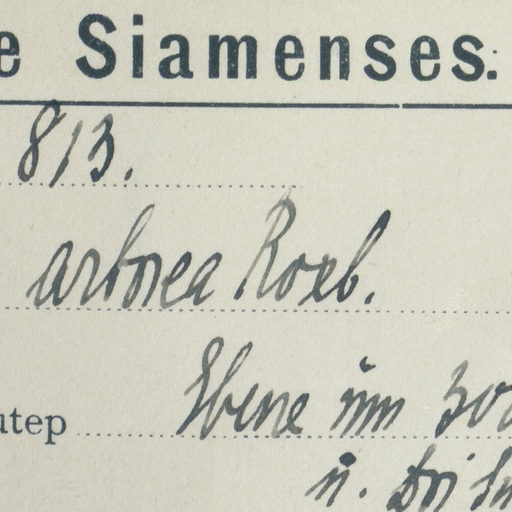 e Siamenses.
813.
arborea Roxb.
utep Ebene im 300
u.